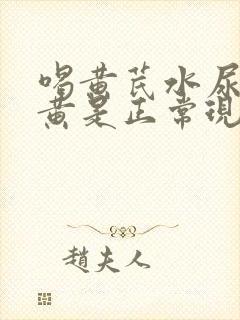 喝黄芪水尿
黄是正常现
趙夫人